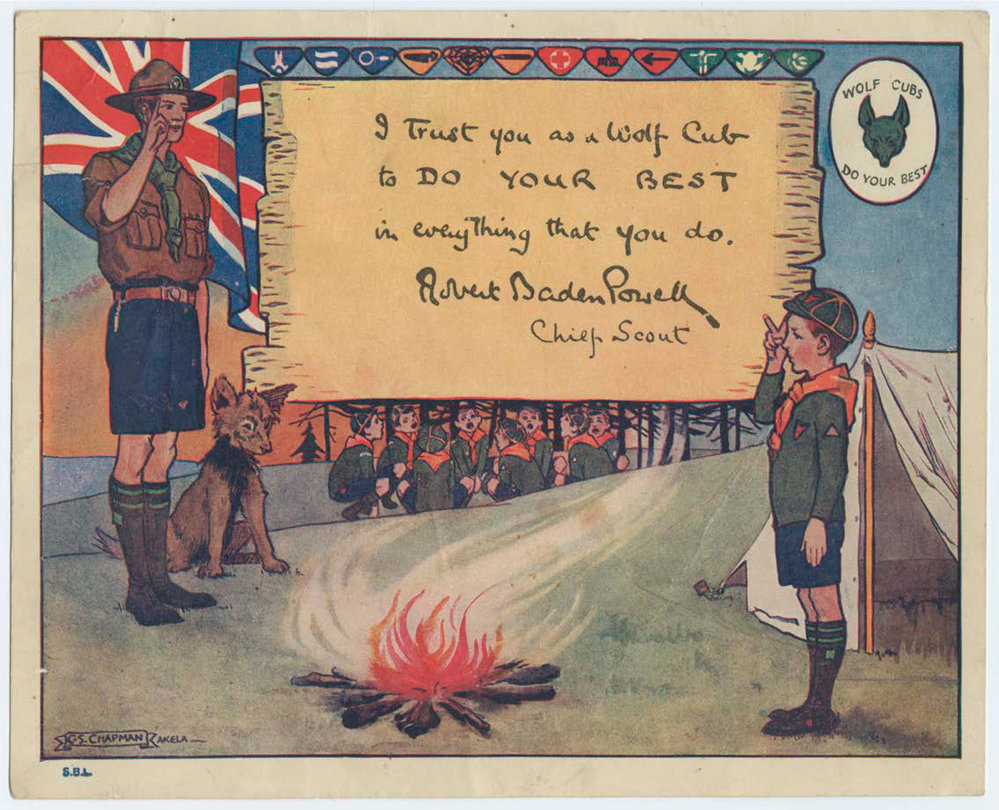 I Trust you as a Wolf Cub
to DO YOUR BEST
in everything that you do.
Robert Baden Powell
Chief Scout
WOLF CUBS
DO YOUR BEST
G.S. CHAPMAN AKELA
S.B.L.